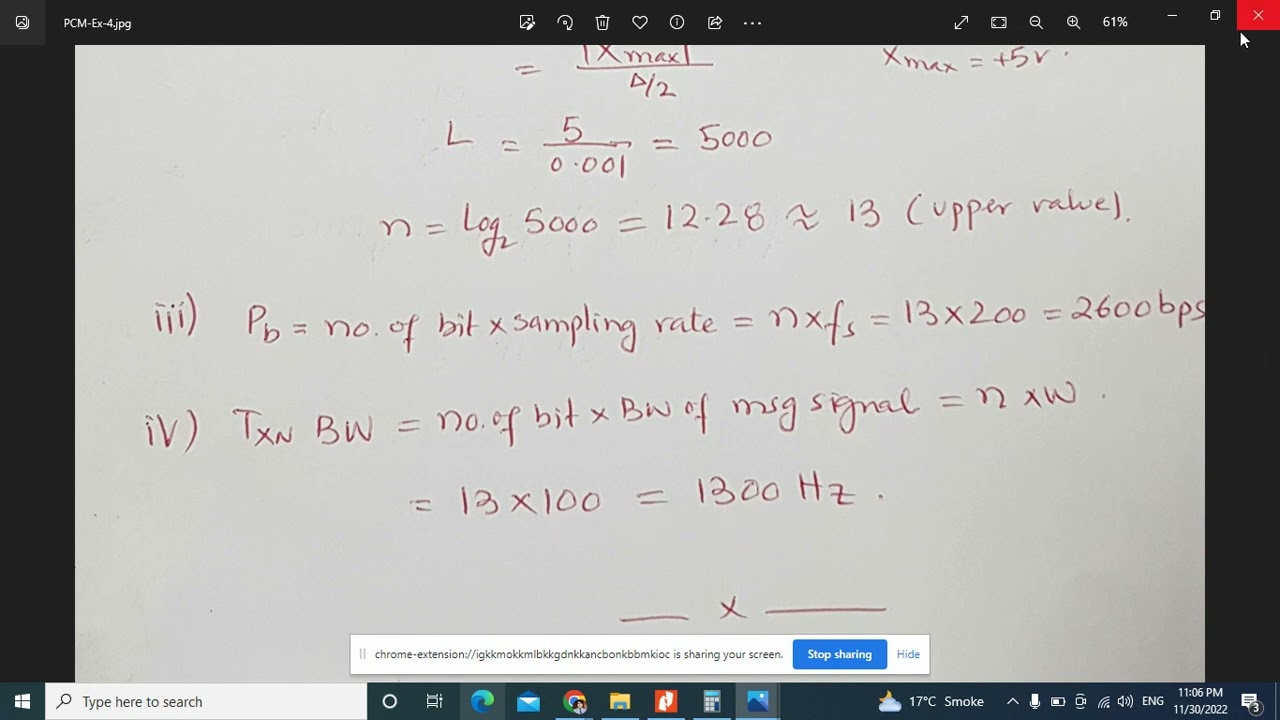 PCM-Ex-4.jpg
61%
= |Xmax| / Δ/2
Xmax = +5v.
L = 5 / 0.001 = 5000
n = log2 5000 = 12.28 ≈ 13 (upper value).
iii) Pb = no. of bit × sampling rate = n×fs = 13×200 = 2600bps
iv) TXN BW = no. of bit × BW of msg signal = n×W.
= 13×100 = 1300 Hz.
— × —
chrome-extension://igkkmokkmlbkkgdnkkancbonkbbmkioc is sharing your screen.
Stop sharing
Hide
Type here to search
17°C Smoke
ENG
11:06 PM
11/30/2022
3